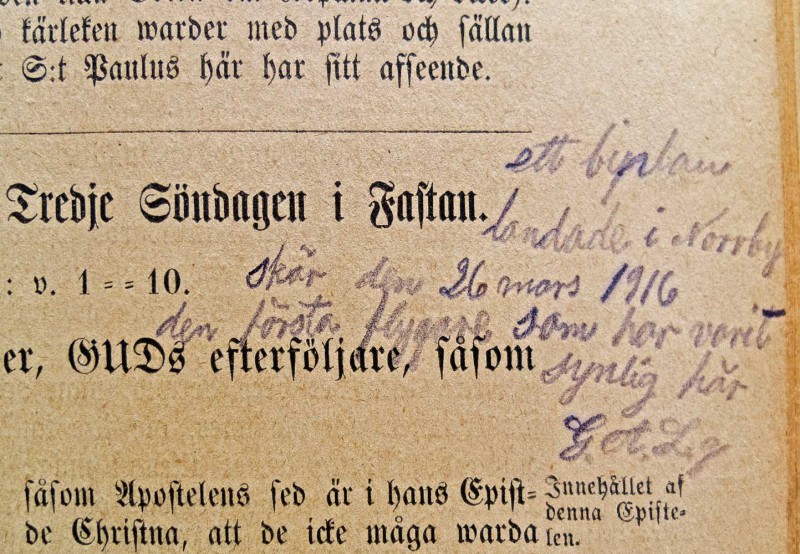 kärleken warder med plats och sällan
S:t Paulus här har sitt afseende.
Tredje Söndagen i Fastan.
ett biplan
landade i Norrby
: v. 1==10.
skär den 26 mars 1916
den första flygare som har varit
synlig här
G. A. Lg
er, GUDs efterföljare, såsom
såsom Apostelens sed är i hans Epist=
de Christna, att de icke måga warda
Innehållet af
denna Episte-
len.